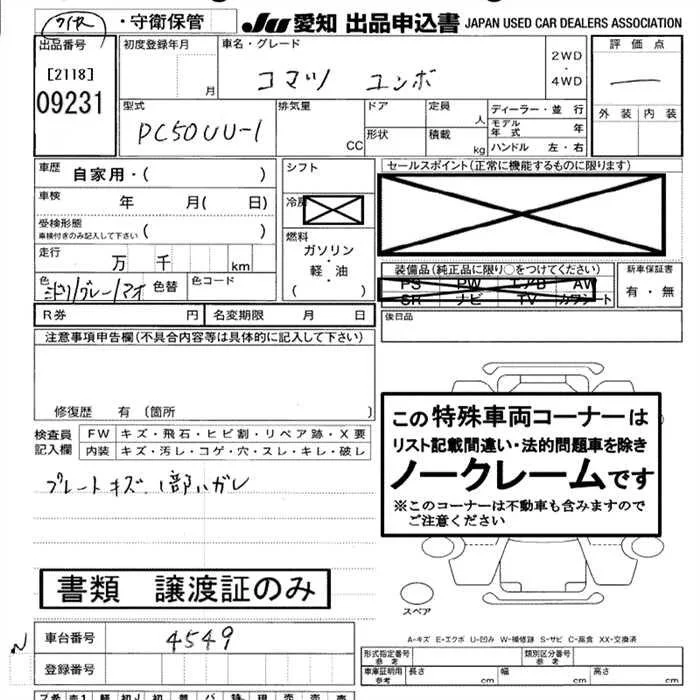 ・守衛保管 JU 愛知 出品申込書 JAPAN USED CAR DEALERS ASSOCIATION
出品番号 初度登録年月 車名・グレード 評価点
[2118] 月 コマツ ユンボ 2WD・4WD
09231 型式 排気量 ドア 定員 ディーラー・並行 外装 内装
PC50UU-1 CC 形状 人 積載 kg モデル年式 年
ハンドル 左・右
車歴 自家用・( ) シフト セールスポイント(正常に機能するものに限ります)
車検 年 月( 日) 冷房
受検形態 ( )
車検付きのみ記入して下さい
燃料 ガソリン・軽・油 ( )
走行 万 千 km
装備品(純正品に限り○をつけてください) 新車保証書
PS PW エアB AW 有・無
SR ナビ TV カワシート
色 ミドリ/グレー/マオ 色替 色コード
R券 円 名変期限 月 日 後日品
注意事項申告欄(不具合内容等は具体的に記入して下さい)
修復歴 有 (箇所 )
この特殊車両コーナーは
リスト記載間違い・法的問題車を除き
ノークレームです
※このコーナーは不動車も含みますので
ご注意ください
検査員記入欄 FW キズ・飛石・ヒビ割・リペア跡・X要
内装 キズ・汚レ・コゲ・穴・スレ・キレ・破レ
プレートキズ、1部ハガレ
書類 譲渡証のみ
スペア
車台番号 4549
A-キズ E-エクボ U-凹み W-補修跡 S-サビ C-腐食 XX-交換済
登録番号
形式指定番号 参考 類別区分番号 参考
車庫証明用 参考 長さ cm 幅 cm 高さ cm